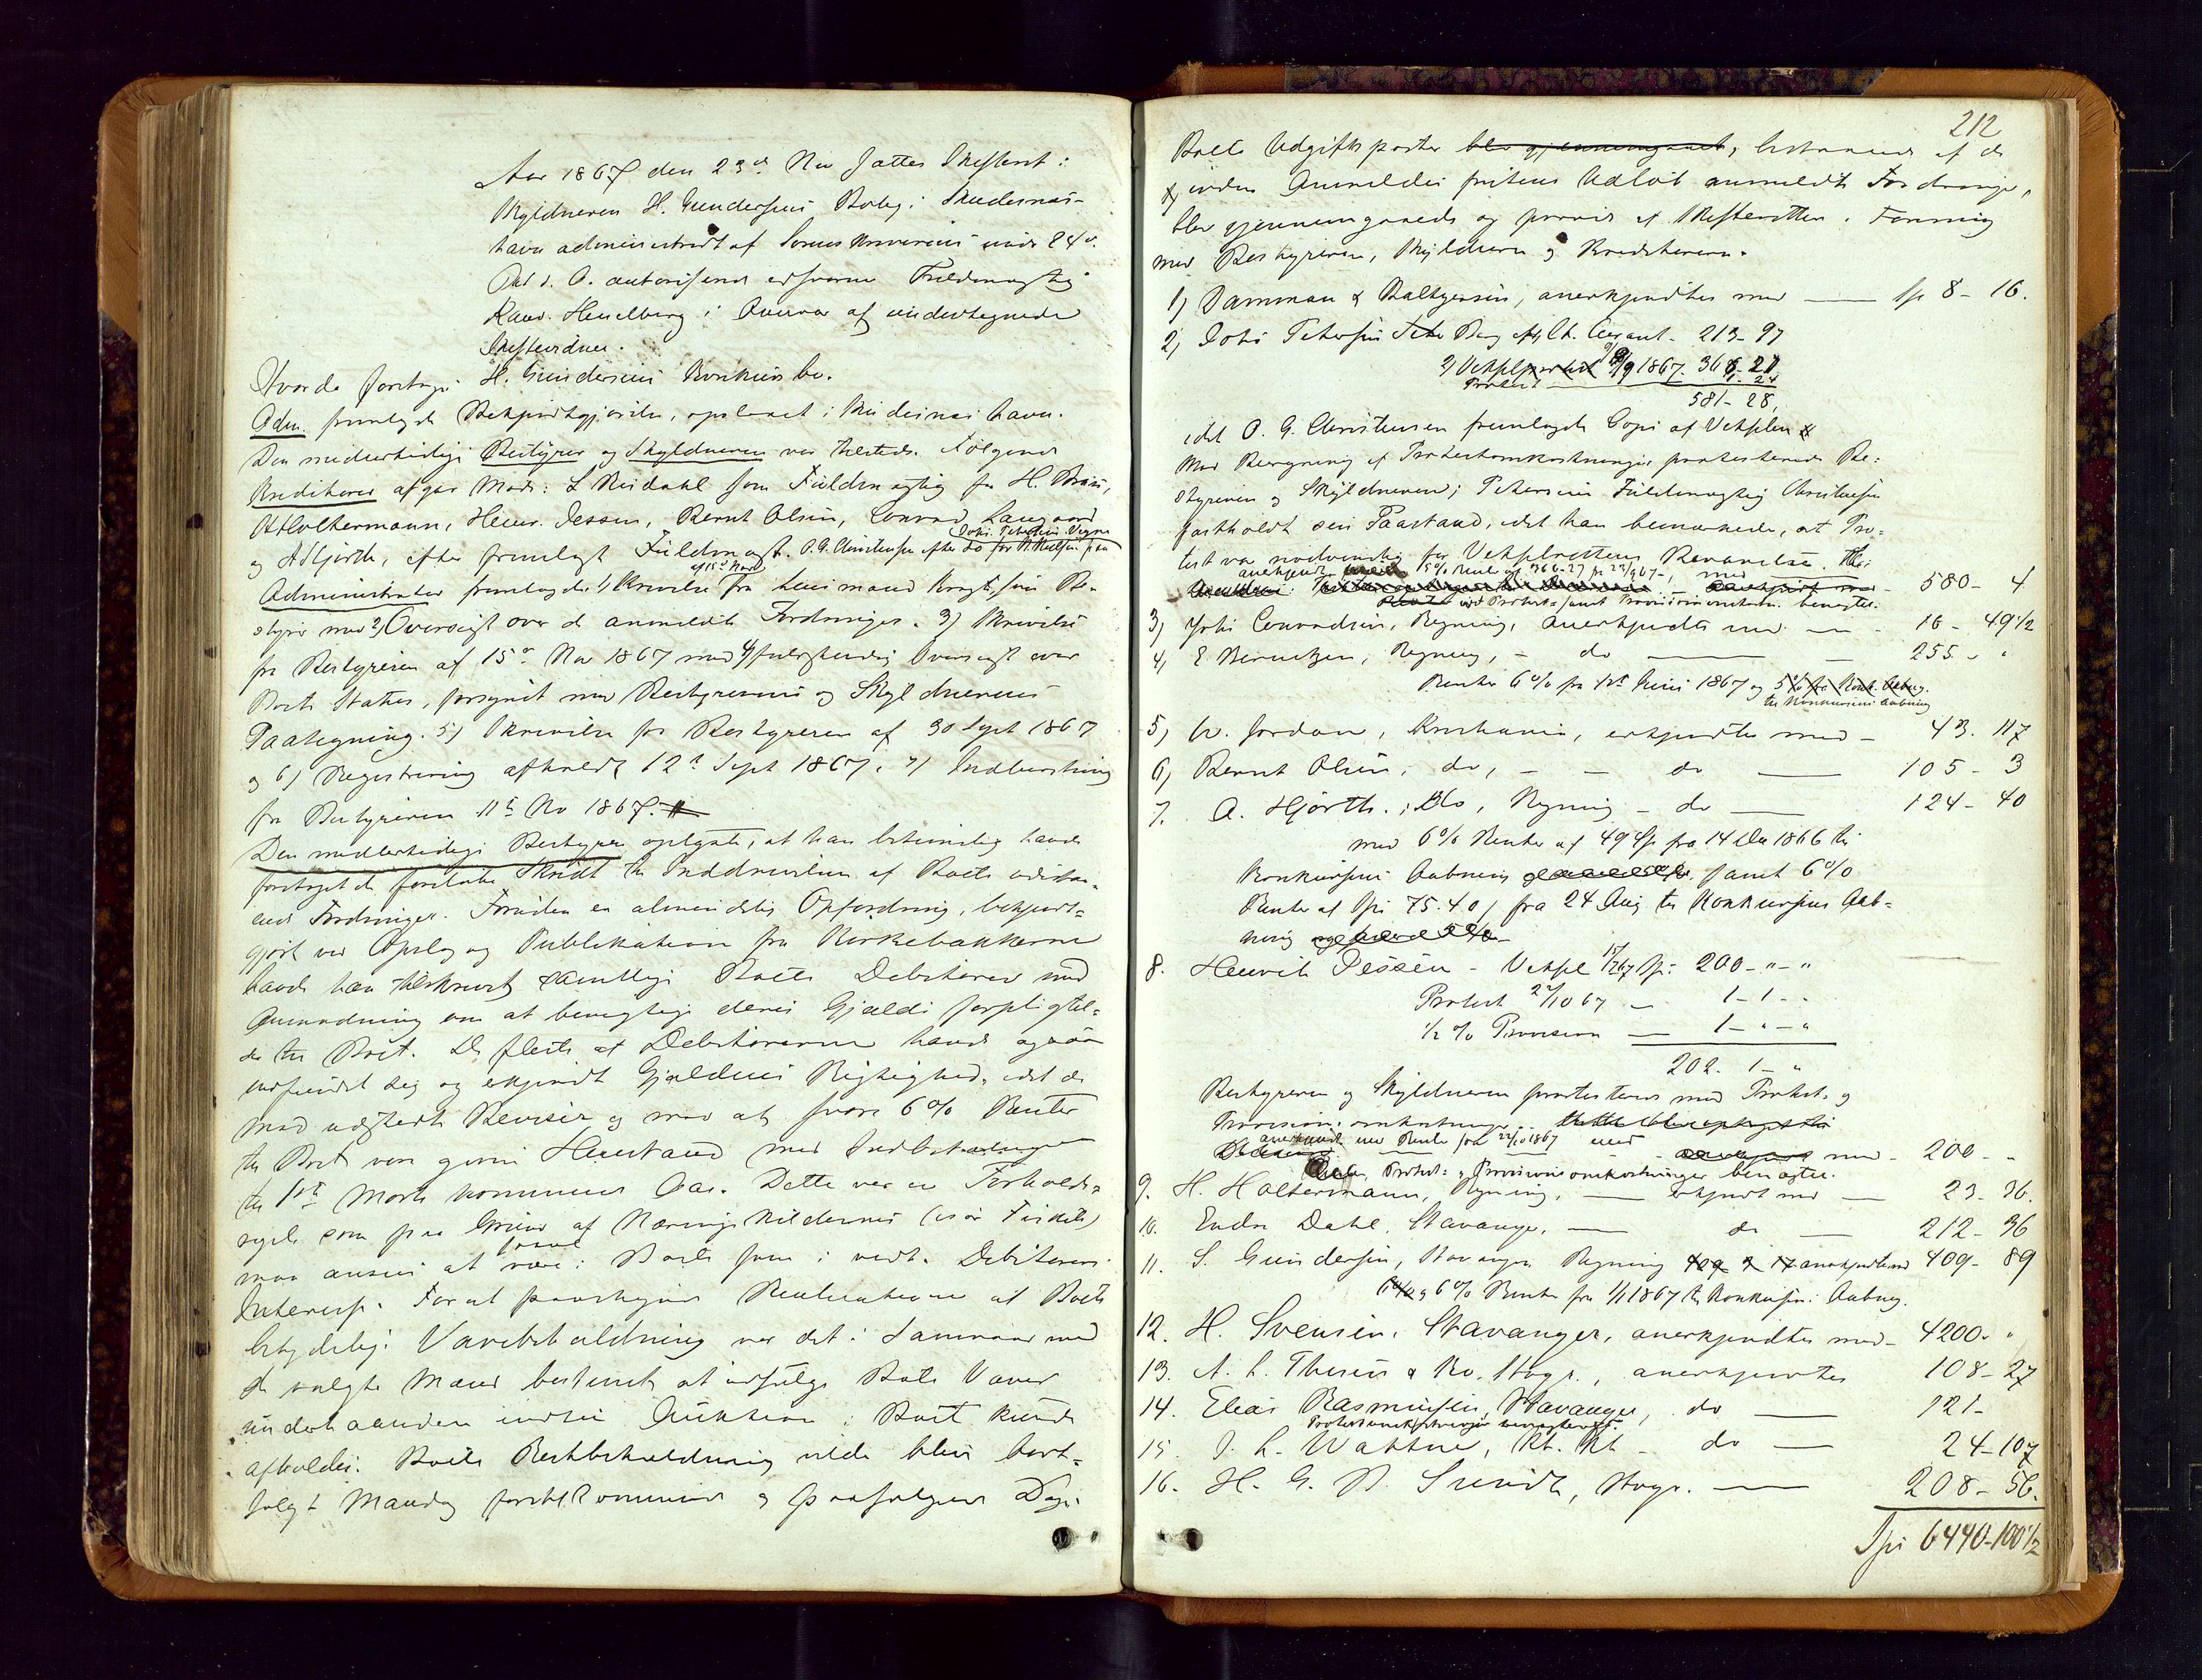 Aar 1867 den 23d Nov sattes Skifteret i
Skyldneren H. Gundersens Bolig i Skudesnæs-
havn administreret af Sorenskriverens under 24d
Okt d. A. autoriserede edsvorne Fuldmægtig
Kand. Heuelberg i Overvær af undertegnede
Skiftevidner.
Hvorda foretoges H. Gundersens Konkursbo.
Adm. fremlagde Bekjendtgjørelse, opslaaet i Skudesnæshavn.
Den midlertidige Bestyrer og Skyldneren var tilstede. Følgende
Kreditorer afgav Møde: L Reidahl som Fuldmægtig for H. Brun,
H Holtermann, Henr. Jessen, Bernt Olsen, Conrad Langaard
Johs. Petersens Vegne
og A Hjorth, efter fremlagt Fuldmagt. O. G. Christensen efter do for
Administrator fremlagde 1) Skrivelse fra Lensmand
styrer med 2) Oversigt over de anmeldte Fordringer. 3) Skrivelse
fra Bestyreren af 15d Nov 1867 med 4) fuldstændig Oversigt over
Boets Status, forsynet med Bestyrerens og Skyldnerens
Paategning. 5) Skrivelse fra Bestyreren af 30 Sept 1867
og 6) Registrering afholdt 12te Sept 1867. 7) Indberetning
fra Bestyreren 11te Nov 1867.
Den midlertidige Bestyrer oplyste, at han betimelig havde
foretaget de fornødne Skridt til Inddrivelse af Boets udestaa-
ende Fordringer. Foruden en almindelig Opfordring, bekjendt-
gjort ved Opslag og Publikation fra Kirkebakkerne
havde han tilskrevet samtlige Boets Debitorer med
Anmodning om at berigtige deres Gjælds forpligtel-
se til Boet. De fleste af Debitorerne havde ogsaa
indfundet sig og erkjendt Gjældens Rigtighed, idet de
mod udstedt Beviser og mod at svare 6% Renter
til Boet var given Henstand med Indbetalingen
til 1ste Marts kommende Aar. Dette var en Forholds-
regel som paa Grund af Næringskildernes (især Fiskets)
maa ansees at være i Boets som i vedk. Debitorers
Interesse. Forat paaskynde Realisationen af Boets
betydelige Varebeholdning var det i Samraad med
de valgte Mænd bestemt at udsælge Boets Varer
underhaanden indtil Auktion i Boet kunde
afholdes. Boets Restbeholdning vilde blive bort-
solgt Mandag førstkommende og paafølgende Dage.
212
Boets Udgiftsposter blev gjennemgaaet, bestaaende af de
inden Anmeldelsesfristens Udløb anmeldte Fordringer,
blev gjennemgaaede og prøvede af Skifteretten i Forening
med Bestyreren, Skyldneren og Kreditorerne.
1) Damman & Baltzersen, anerkjendtes med — Sp 8 - 16.
2) Johs Petersen Berg 213 - 97
2) Vexel 1867. 366 - 27
Protest 1 - 24
581 - 28,
idet O. G. Christensen fremlagde Copi af Vexelen
Mod Beregning af Protestomkostninger protesterede Be-
styreren og Skyldneren; Petersens Fuldmægtig Christensen
fastholdt sin Paastand, idet han bemærkede, at Pro-
test var nødvendig for Vexelrettens Bevarelse.
anerkjendt 5% Rente af 366-27 fra 23/9 67, med 580 - 4
Protest- samt Provisionsomkostn. benægtes.
3) Johs Conradsen, Regning, anerkjendtes med — 16 - 49 1/2
4) E Berentzen, Regning, - do — 255 - "
Renter 6% fra 1ste Juni 1867 og 5% fra Konk. Aabng.
til Konkursens Aabning
5) W. Jordan, Kristiania, erkjendtes med — 43. 117
6) Bernt Olsen, do, — — do — 105 - 3
7. A. Hjorth. i do, Regning — do — 124 - 40
med 6% Renter af 49 Sp fra 14 Dec 1866 til
Konkursens Aabning samt 6%
Renter af Spd 75.40 fra 24 Aug til Konkursens Aab-
ning
8. Henrik Jessen - Vexel 15/7 67 Sp: 200 - " - "
Protest 22/10 67 — 1 - 1 - "
1/2 % Provision — 1 - " - "
202. 1 - "
Bestyreren og Skyldneren protesterede mod Protest- og
Provisionsomkostninger
anerkjendt med Renter fra 22/10 1867 med - 200 - "
Protest- og Provisionsomkostninger benægtes.
9. H. Holtermann, Regning, — erkjendt med — 23 - 36.
10. Endre Dahl, Stavanger, — do — 212 - 36
11. S. Gundersen, Stavanger Regning 409 anerkjendt med 409 - 89
6% Renter fra 1/1 1867 til Konkursens Aabng.
12. H. Svensen, Stavanger, anerkjendtes med - 4200 - "
13. A. L. Thesen & Ko, Stvgr., anerkjendtes 108 - 27
14. Elias Rasmussen, Stavanger, do — 121 -
Protestomkostninger benægtes
15. J. L. Wattne, do — 24 - 107
16. H. G. B. Sundt, Stvgr. — 208 - 56.
Spd 6440 - 100 1/2